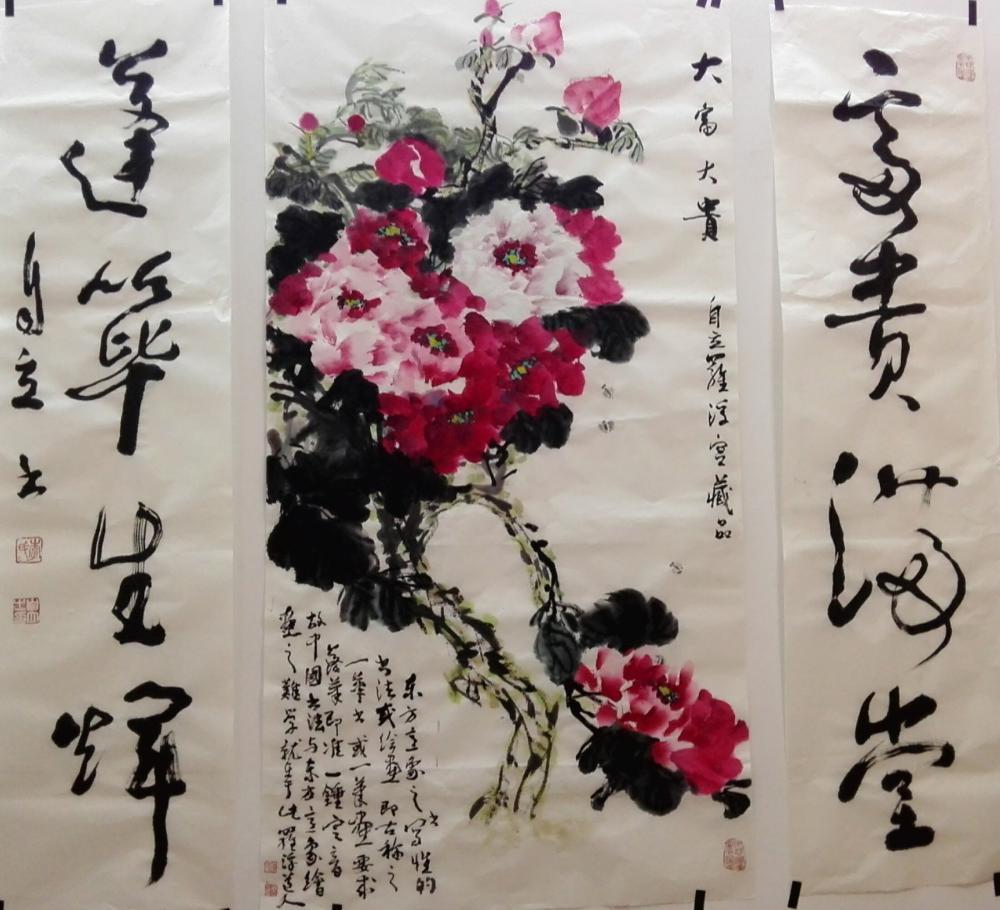 富贵满堂
大富大貴
自立羅浮宫藏品
东方意象之书写性的
书法或绘画即古称之
一笔书或一笔画要求
落笔即准一锤定音
故中國书法与东方意象繪
画之難学就在于此羅浮道人
蓬筚生辉
自立书